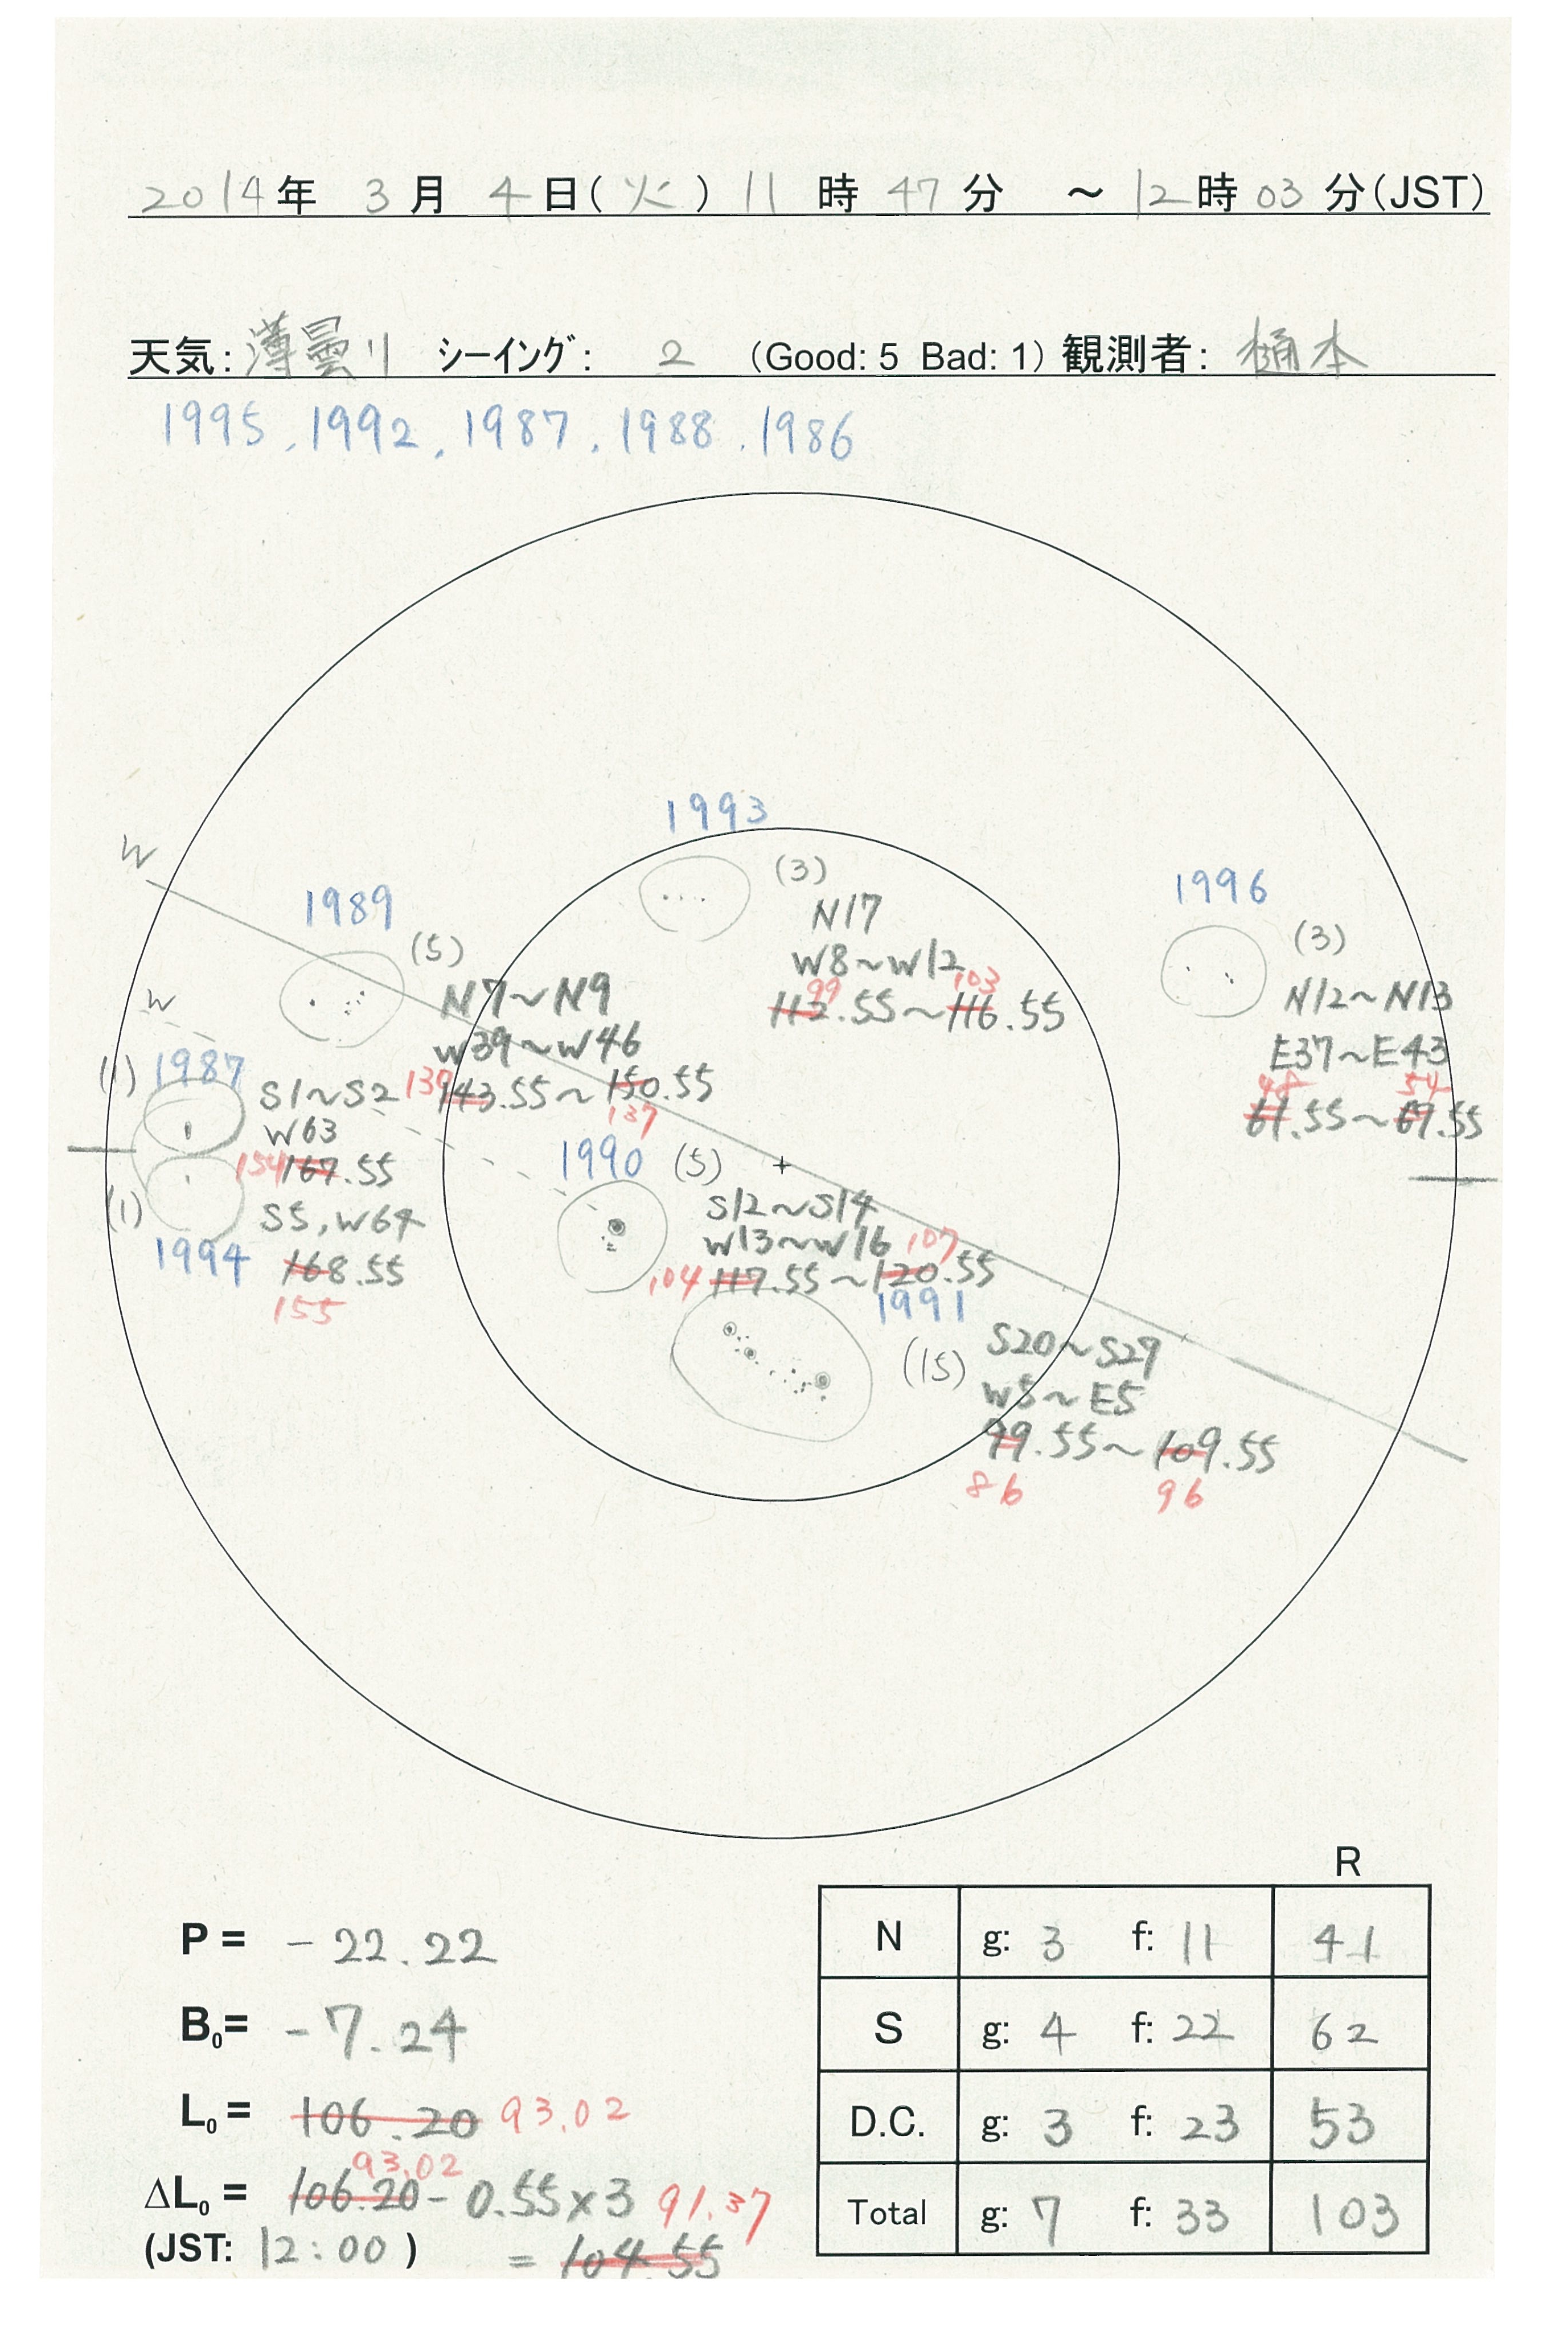 2014年 3月 4日(火) 11時 47分 ～ 12時 03分(JST)
天気: 薄曇り シーイング: 2 (Good: 5 Bad: 1) 観測者: 樋本
1995, 1992, 1987, 1988, 1986
1993
(3)
N17
W8～W12
99 103
112.55～116.55
W
1989
(5)
N7～N9
W39～W46
130 143.55～150.55
137
1996
(3)
N12～N13
E37～E43
48 54
61.55～67.55
W
(1) 1987
S1～S2
W63
154 167.55
(1)
S5, W64
1994
168.55
155
1990 (5)
S12～S14
W13～W16 107
104 117.55～120.55
1991
(15)
S20～S29
W5～E5
99.55～109.55
86 96
P = -22.22
B₀= -7.24
L₀ = 106.20 93.02
93.02
ΔL₀ = 106.20 - 0.55×3 91.37
(JST: 12:00 ) = 104.55
R
N g: 3 f: 11 41
S g: 4 f: 22 62
D.C. g: 3 f: 23 53
Total g: 7 f: 33 103